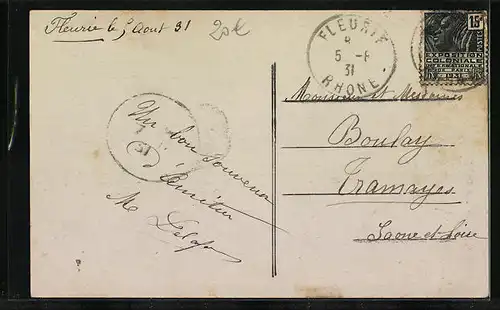 Fleurie le 5 Aout 31
20€
FLEURIE
5 -8
31
RHONE
15c
POSTES
EXPOSITION
COLONIALE
INTERNATIONALE
PARIS
1931
Monsieur et Mesdames
Boulay
Tramayes
Saone et Loire
31
Un bon souvenir
M